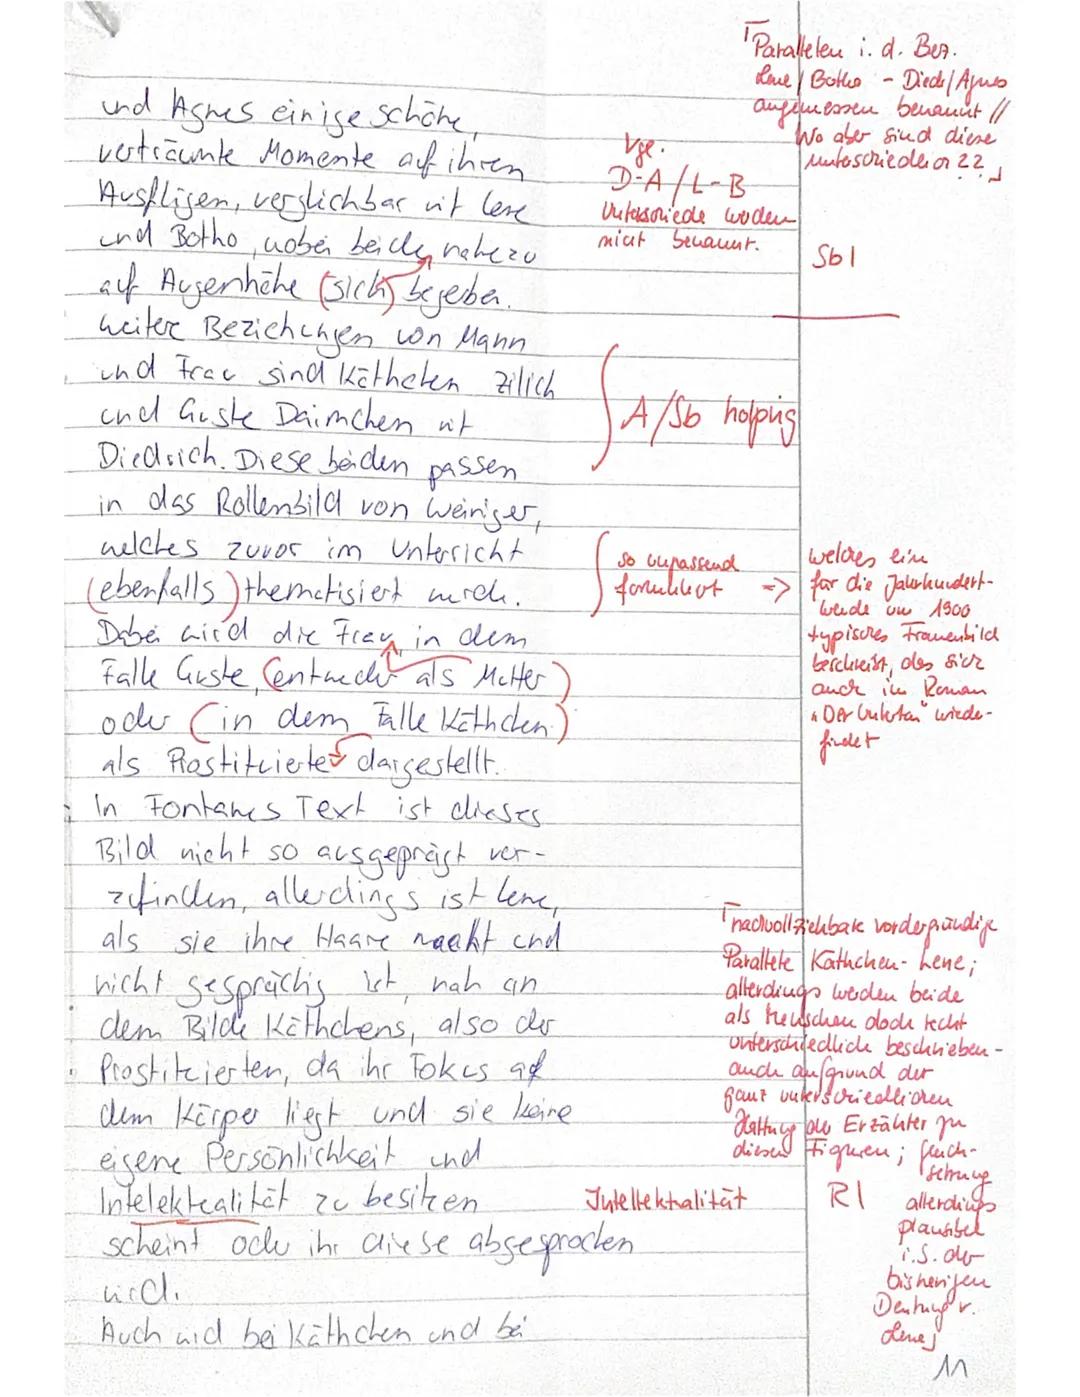 und Agnes einige schöne,
verträumte Momente auf ihren
Ausflügen, verglichbar mit Lene
und Botho, wobei beide nahezu
auf Augenhöhe (sich) begeben.
Weitere Beziehungen von Mann
und Frau sind Käthchen Zilich
und Guste Daimchen mit
Diedrich. Diese beiden passen
in das Rollenbild von Weiniger,
welches zuvor im Unterricht
(ebenfalls) thematisiert wurde.
Dabei wird die Frau in dem
Falle Guste, (entweder als Mutter)
oder (in dem Falle Käthchen)
als Prostituierte dargestellt.
In Fontanes Text ist dieses
Bild nicht so ausgeprägt vor-
zufinden, allerdings ist Lene,
als sie ihre Haare macht und
nicht gesprächig ist, nah an
dem Bilde Käthchens, also der
Prostituierten, da ihr Fokus auf
dem Körper liegt und sie keine
eigene Persönlichkeit und
Intelektualität zu besitzen
scheint oder ihr diese abgesprochen
wird.
Auch wird bei Käthchen und bei
Parallelen i. d. Bez.
Lene/Botho - Died./Agnes
angemessen benannt //
Wo aber sind diese
unterschieden ??
Vgl.
D-A/L-B
Unterschiede werden
nicht benannt.
Sb|
A/Sb holprig
so unpassend
formuliert =>
welches ein
für die Jahrhundert-
wende um 1900
typisches Frauenbild
beschreibt, das sich
auch im Roman
"Der Untertan" wieder-
findet
nachvollziehbare vordergründige
Parallele Käthchen - Lene;
allerdings werden beide
als Menschen doch recht
unterschiedlich beschrieben -
auch aufgrund der
ganz unterschiedlichen
Haltung der Erzähler zu
diesen Figuren; Gleich-
setzung
allerdings
plausibel
i.S. der
bisherigen
Deutung v.
Lene
Intellektualität
R|
11